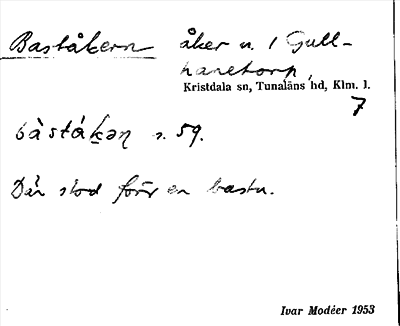 Baståkern åker n. 1 Gull-
hanetorp,
Kristdala sn, Tunaläns hd, Klm. l.
7
bàståkəṇ s. 59.
Där stod förr en bastu.
Ivar Modéer 1953